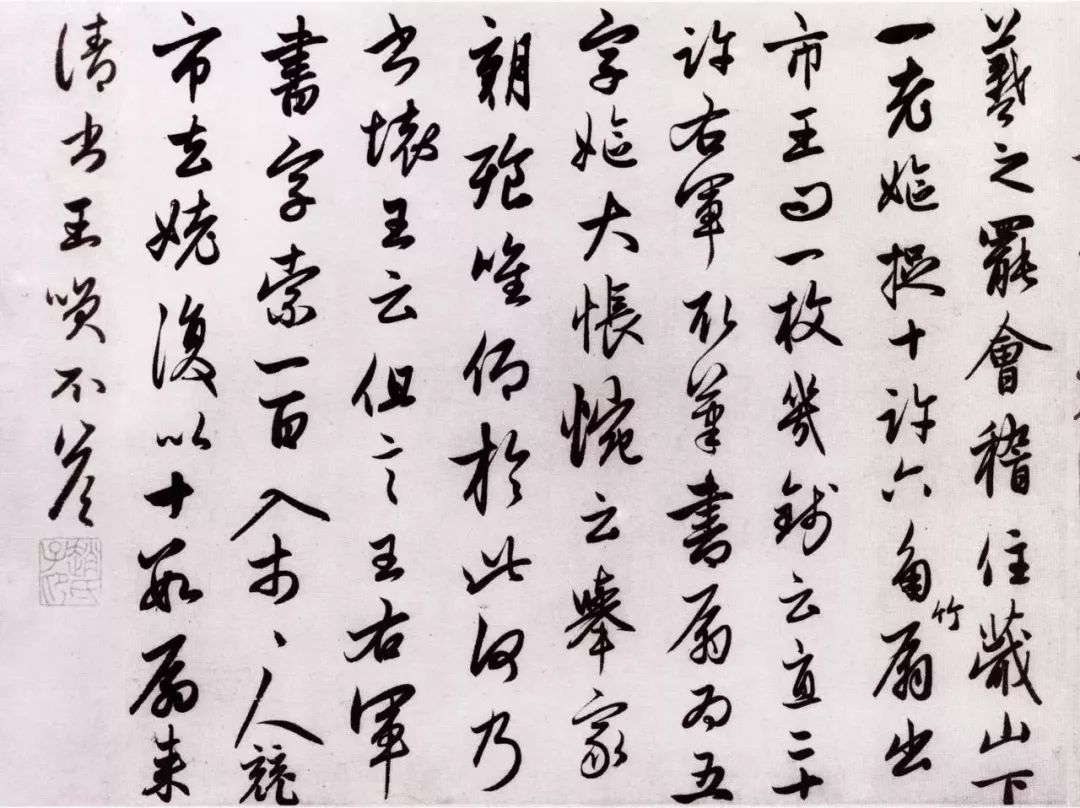 羲之罷會稽住蕺山下
一老嫗捉十許六角竹扇出
市王問一枚幾錢云直二十
許右軍取筆書扇為五
字嫗大悵惋云舉家
朝飡唯仰於此何乃
書壞王云但言王右軍
書字索一百入市〻人競
市去姥復以十數扇來
請書王咲不答
趙氏子昂